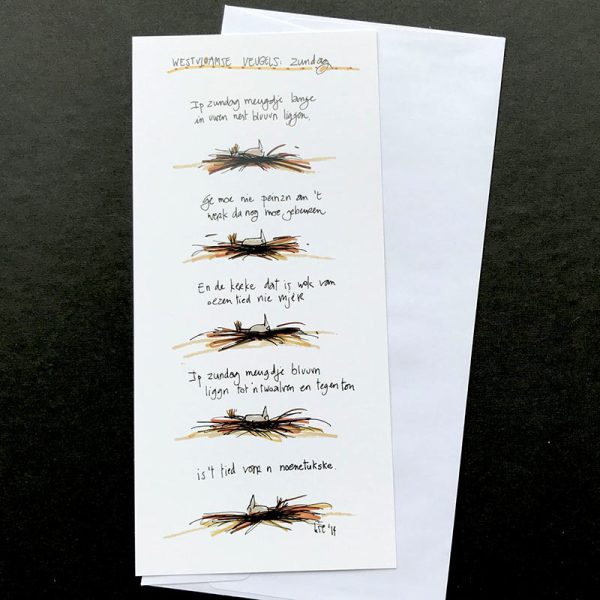 WESTVLAAMSE VEUGELS: zundag
Ip zundag meugdje lange
in uwen nest bluvvn liggen.
Ge moe nie peinzn an 't
werk da nog moe gebeuren
En de kerke dat is wok van
oezen tied nie mjèr
Ip zundag meugdje bluvvn
liggn tot 'n twoalven en tegen ton
is 't tied voor n noenetukske.